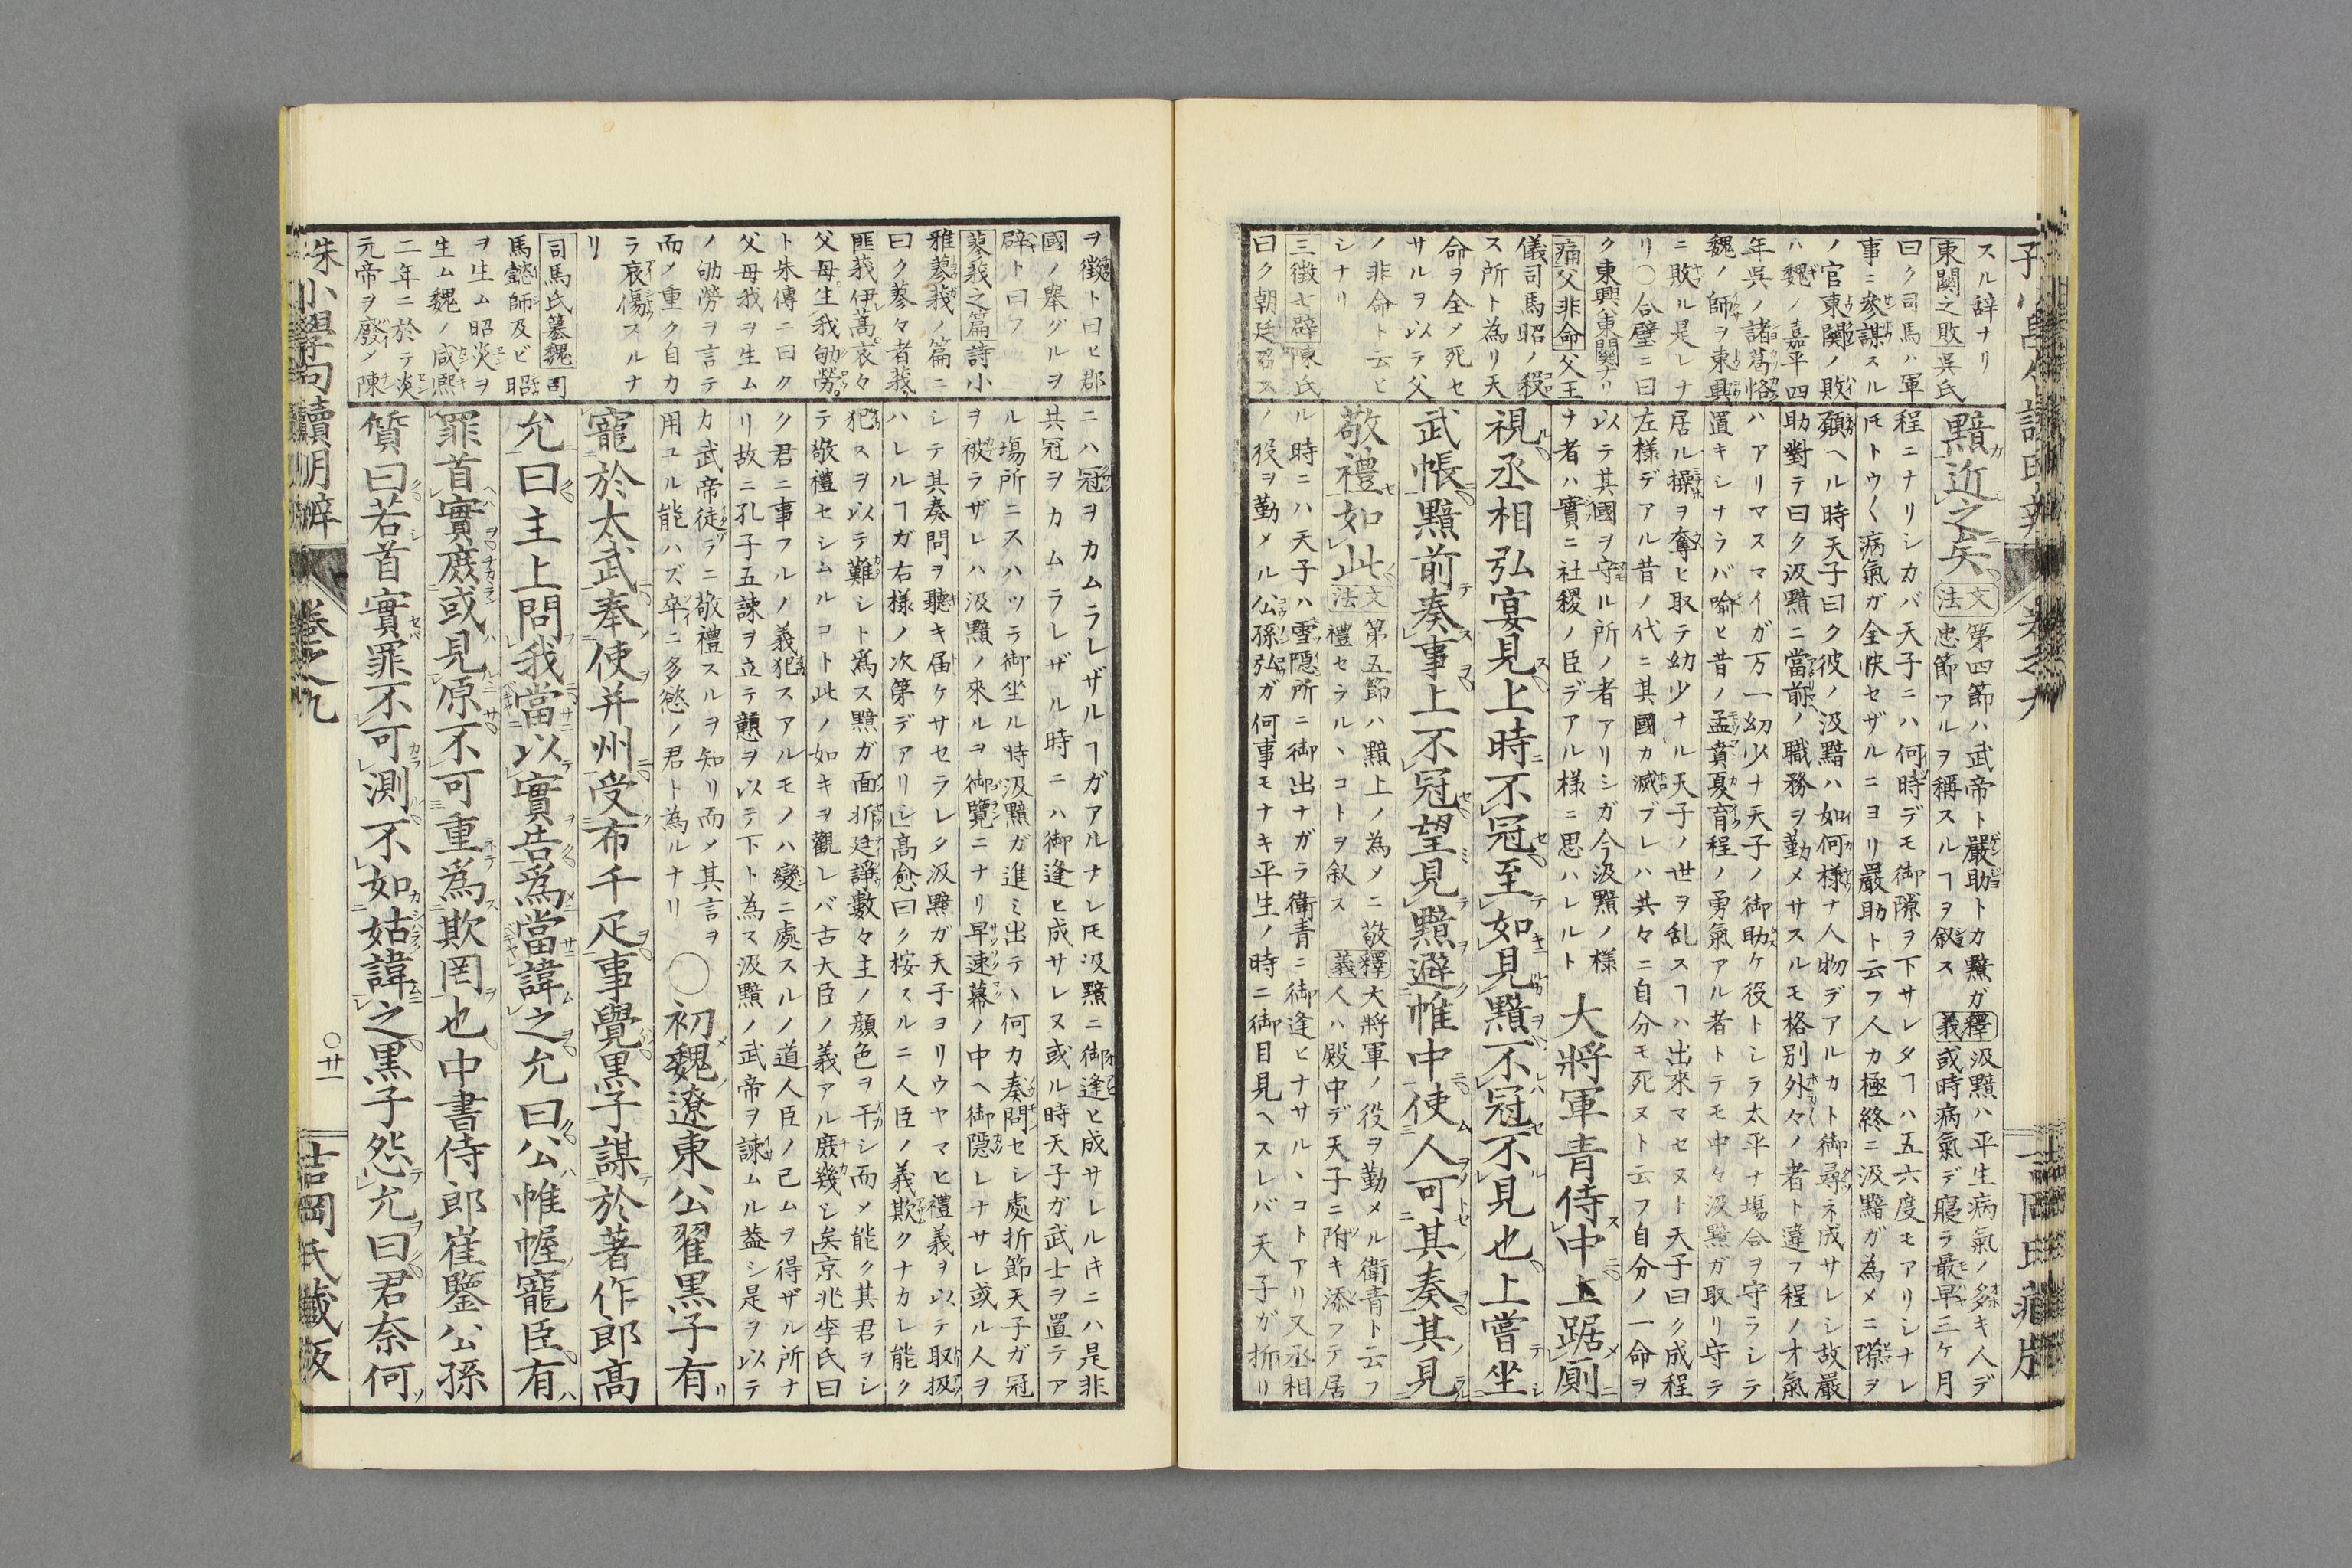 スル辞ナリ
東關之敗 呉氏
曰ク司馬ハ軍
事ニ參謀スル
ノ官東關ノ敗
ハ魏ノ嘉平四
年呉ノ諸葛恪
魏ノ師ヲ東興
ニ敗ル是レナ
リ〇合璧ニ曰
ク東興ハ東關ナリ
痛父非命 父王
儀司馬昭ノ殺
ス所ト為リ天
命ヲ全メ死セ
サルヲ以テ父
ノ非命ト云ヒ
シナリ
三徴七辟 陳氏
曰ク朝廷召ス
黯近之矣 文法 忠節アルヲ稱スルヿヲ叙ス
第四節ハ武帝ト嚴助トカ黯ガ
釋義 汲黯ハ平生病氣ノ多キ人デ
或時病氣デ寢テ最早三ケ月
程ニナリシカバ天子ニハ何時デモ御隙ヲ下サレタヿハ五六度モアリシナレ
𪜈トウ〱病氣ガ全快セザルニヨリ嚴助ト云フ人カ極終ニ汲黯ガ為メニ隙ヲ
願ヘル時天子曰ク彼ノ汲黯ハ如何様ナ人物デアルカト御尋ネ成サレシ故嚴
助對テ曰ク汲黯ニ當前ノ職務ヲ勤メサスルモ格别外々ノ者ト違フ程ノオ氣
ハアリマスマイガ万一幼少ナ天子ノ御助ケ役トシラ太平ナ塲合ヲ守ラシテ
置キシナラバ喩ヒ昔ノ孟賁夏育程ノ勇氣アル者トテモ中々汲黯ガ取リ守テ
居ル操ヲ奪ヒ取テ幼少ナル天子ノ世ヲ乱スヿハ出來マセヌト天子曰ク成程
左様デアル昔ノ代ニ其國カ滅ブレハ共々ニ自分モ死ヌト云フ自分ノ一命ヲ
以テ其國ヲ守ル所ノ者アリシガ今汲黯ノ様
ナ者ハ實ニ社稷ノ臣デアル様ニ思ハレルト
大將軍青侍中上踞廁
視丞相弘宴見上時不冠至如見黯不冠不見也上嘗坐
武帳黯前奏事上不冠望見黯避帷中使人可其奏其見
敬禮如此 文法 第五節ハ黯上ノ為メニ敬
禮セラルヽコトヲ叙ス
釋義 大將軍ノ役ヲ勤メル衛青ト云フ
人ハ殿中デ天子ニ附キ添フテ居
ル時ニハ天子ハ雪隱所ニ御出ナガラ衛青ニ御逢ヒナサルヽコトアリ又丞相
ノ役ヲ勤メル公孫弘ガ何事モナキ平生ノ時ニ御目見ヘスレバ天子ガ折リ
ヲ徴ト曰ヒ郡
國ノ舉グルヲ
辟ト曰フ
蓼莪之篇 詩小
雅蓼莪ノ篇ニ
曰ク蓼々者莪
匪莪伊蒿哀々
父母生我劬勞
ト朱傳ニ曰ク
父母我ヲ生ム
ノ劬勞ヲ言テ
而メ重ク自カ
ラ哀傷スルナ
リ
司馬氏簒魏 司
馬懿師及ビ昭
ヲ生ム昭炎ヲ
生ム魏ノ咸熈
二年ニ於テ炎
元帝ヲ廢メ陳
ニハ冠ヲカムラレザルヿガアルナレ𪜈汲黯ニ御逢ヒ成サレルキニハ是非
共冠ヲカムラレザル時ニハ御逢ヒ成サレヌ或ル時天子ガ武士ヲ置テア
ル塲所ニスハツテ御坐ル時汲黯ガ進ミ出テヽ何カ奏問セシ處折節天子ガ冠
ヲ被ラザレハ汲黯ノ來ルヲ御覽ニナリ早速幕ノ中ヘ御隱レナサレ或ル人ヲ
シテ其奏問ヲ聽キ届ケサセラレタ汲黯ガ天子ヨリウヤマヒ禮義ヲ以テ取扱
ハレルヿガ右様ノ次第デアリシ」高愈曰ク按スルニ人臣ノ義欺クナカレ能ク
犯スヲ以テ難シト為ス黯ガ面折廷諍數々主ノ顔色ヲ干シ而メ能ク其君ヲシ
テ敬禮セシムルコト此ノ如キヲ觀レバ古大臣ノ義アル庶幾シ矣」京兆李氏曰
ク君ニ事フルノ義犯スアルモノハ變ニ處スルノ道人臣ノ己ムヲ得ザル所ナ
リ故ニ孔子五諫ヲ立テ戇ヲ以テ下ト為ス汲黯ノ武帝ヲ諫ムル益シ是ヲ以テ
カ武帝徒ラニ敬禮スルヲ知リ而メ其言ヲ
用ユル能ハズ卒ニ多慾ノ君ト為ルナリ
〇初魏遼東公翟黒子有
寵於太武奉使并州受布千疋事覺黒子謀於著作郎高
允曰主上問我當以實告為當諱之允曰公帷幄寵臣有
罪首實庶或見原不可重為欺罔也中書侍郎崔鑒公孫
質曰若首實罪不可測不如姑諱之黒子怨允曰君奈何
朱子小學句讀明辨 卷之九 〇廿一 吉岡氏藏版